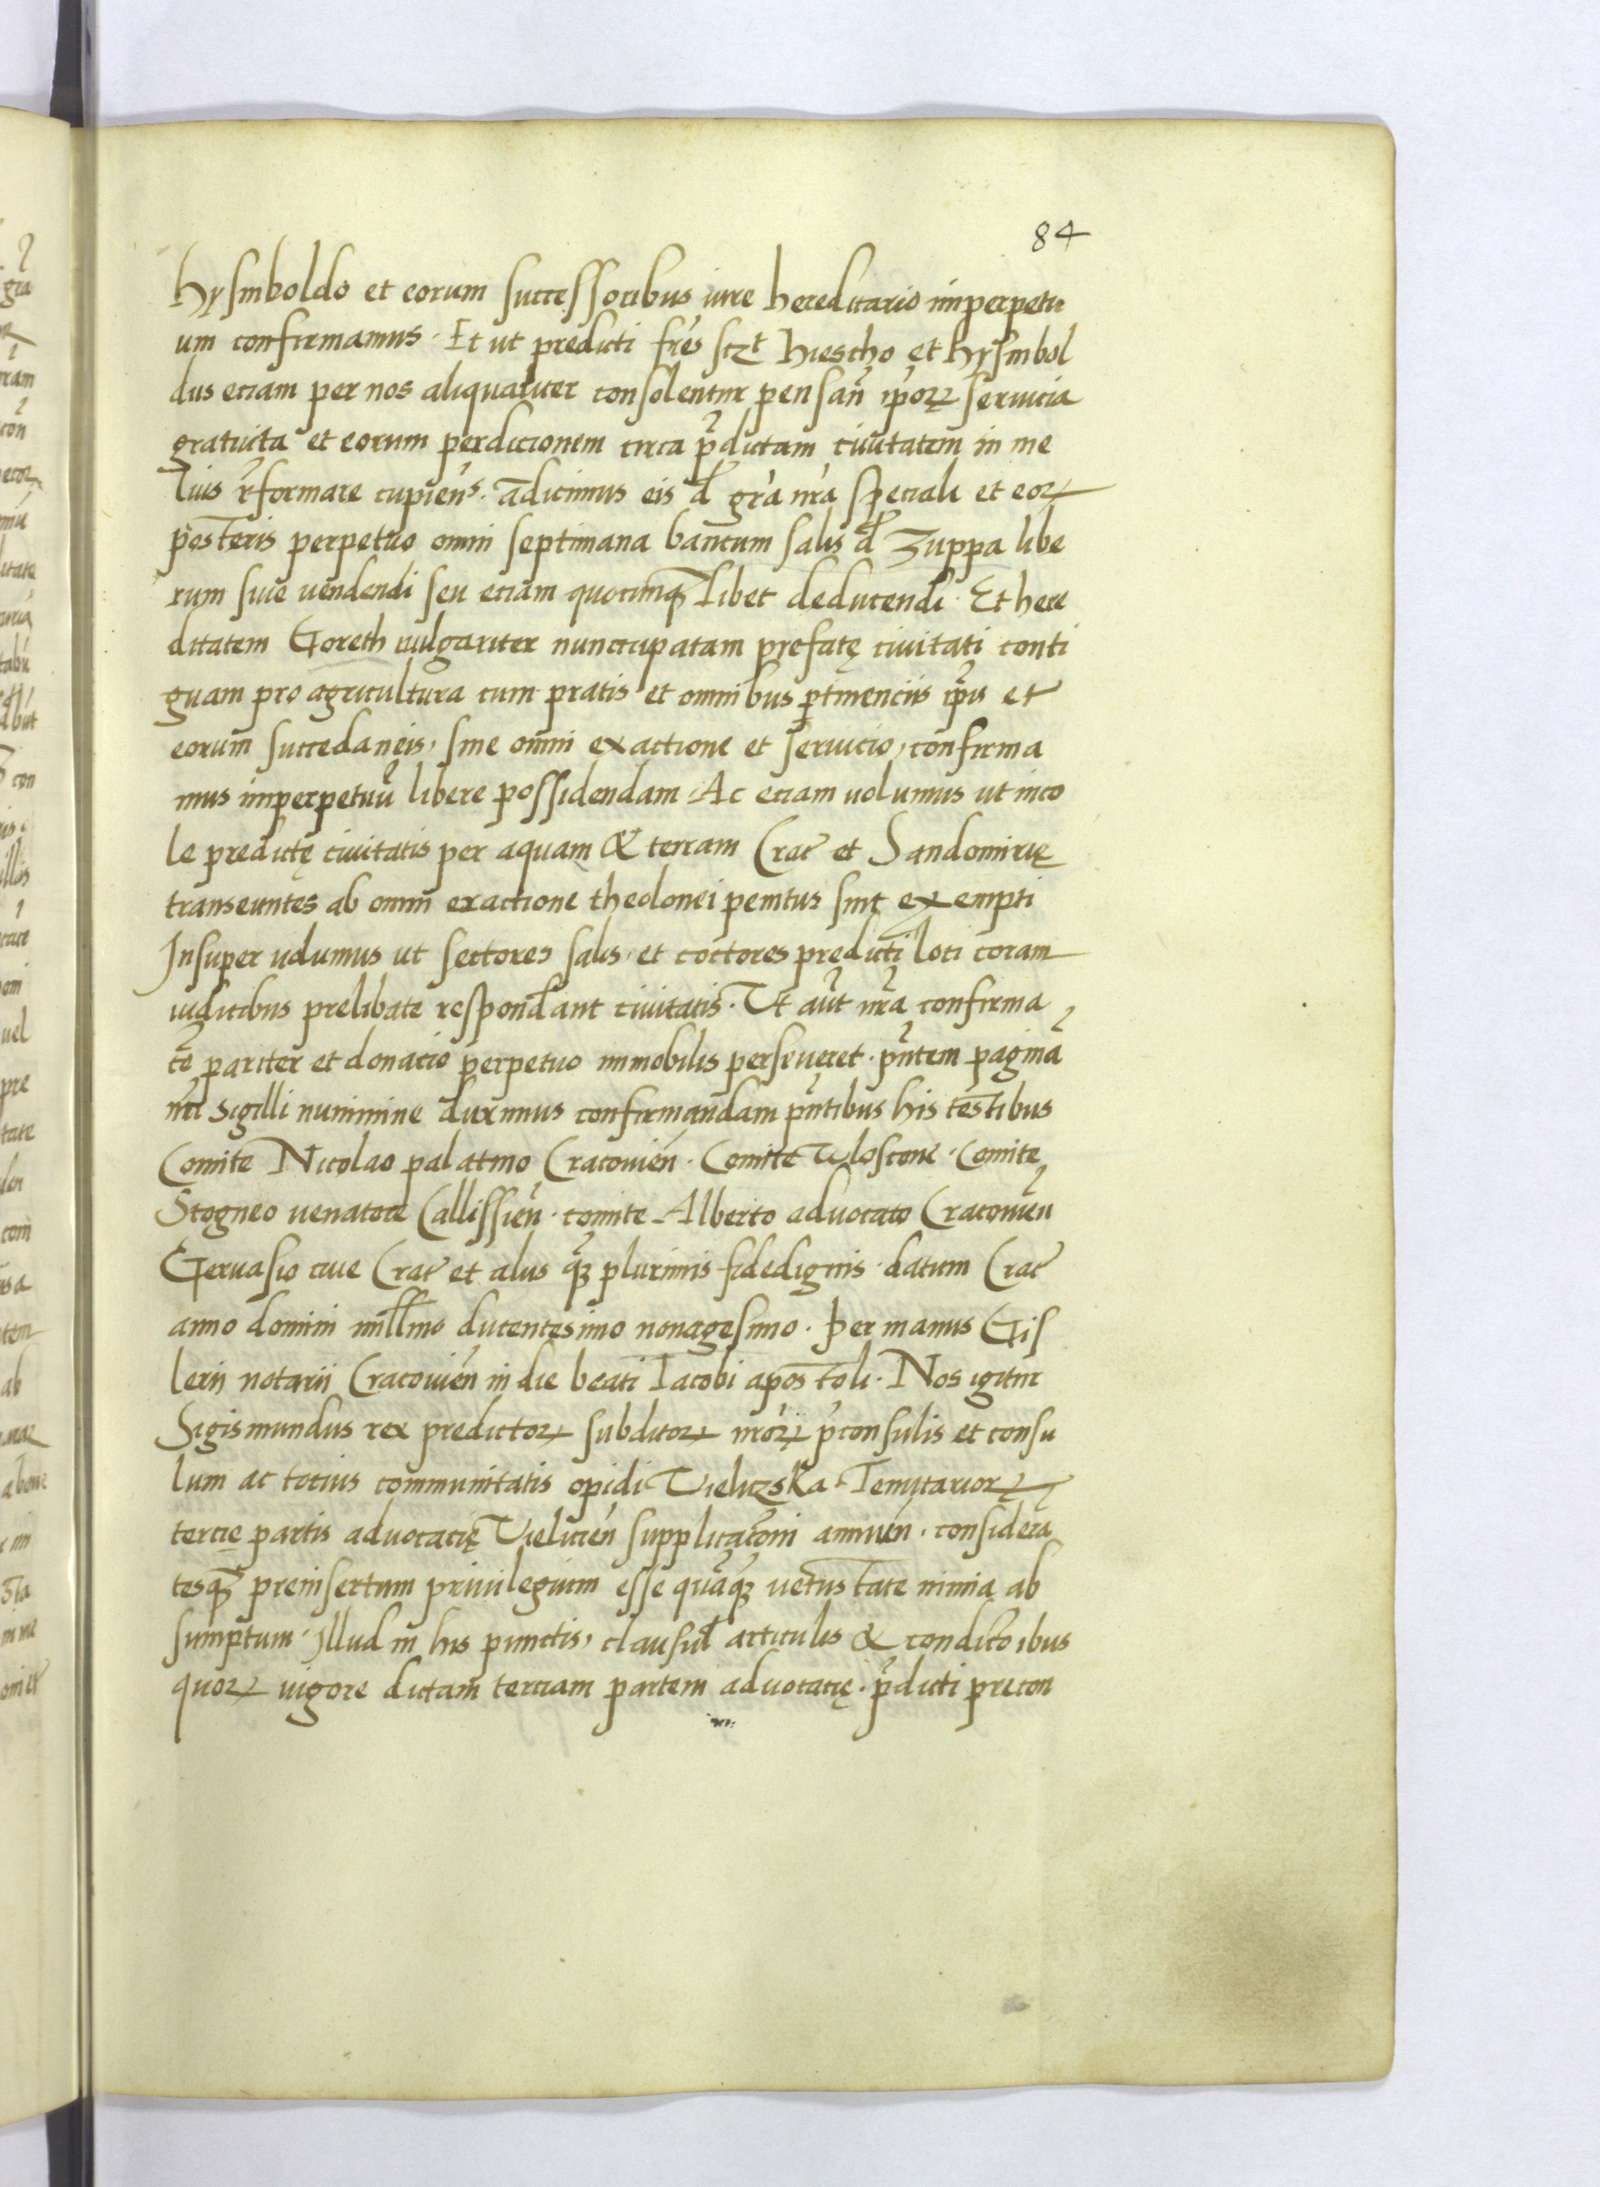 84
Hysinboldo et eorum successoribus iure hereditario inperpetu
um confirmamus · Et ut predicti frēs sczt Hiescho et Hysinbol
dus eciam per nos aliqualiter consolentur pensañ ip̄oꝝ seruicia
gratuita et eorum perdicionem circa p̄dictam ciuitatem in me
lius r̄formare cupieñs · adicimus eis d̄ gr̄a nr̄a speciali et eoꝝ
posteris perpetuo omni septimana bancum salis d̄ Zuppa libe
rum siue uendendi seu eciam quocunqꝫ libet deducendi · Et here
ditatem Goreth uulgariter nunccupatam prefatę ciuitati conti
guam pro agricultura cum pratis et omnibus ꝑtinenciis ip̄is et
eorum succedaneis, sine omni exactione et seruicio, confirma
mus inperpetuū libere possidendam · Ac eciam uolumus ut inco
le predictę ciuitatis per aquam & terram Crac̄ et Sandomirię
transeuntes ab omni exactione theolonei penitus sint exempti
Insuper uolumus ut sectores salis, et coctores predicti loci coram
iudicibus prelibate respondeant ciuitatis · Ut aūt nr̄a confirma
tō pariter et donacio perpetuo inmobilis perseueret · pn̄tem paginā
nr̄i sigilli munimine duximus confirmandam pn̄tibus his testibus
Comite Nicolao palatino Cracouieñ · Comite Wloscone · Comite
Stogneo uenatore Callissieñ · comite Alberto aduocato Cracouieñ
Geruasio ciue Crac̄ et aliis qꝫ plurimis fidedignis · datum Crac̄
anno domini mill̄mo ducentesimo nonagesimo · Per manus Gis
lerii notarii Cracouieñ in die beati Iacobi apostoli · Nos igitur
Sigismundus rex predictoꝝ subditoꝝ nr̄oꝝ p̄consulis et consu
lum ac tocius communitatis opidi Vieliczska Tenutarioꝝ
tercię partis aduocacię Vielicieñ supplicacōni annueñ · considerā
tesqꝫ preinsertum priuilegium esse quāqꝫ uetustate nimia ab
sumptum · Illud in his punctis, clausul̄ articulis & condicōibus
quoꝝ uigore dictam terciam partem aduocacię · p̄dicti precon